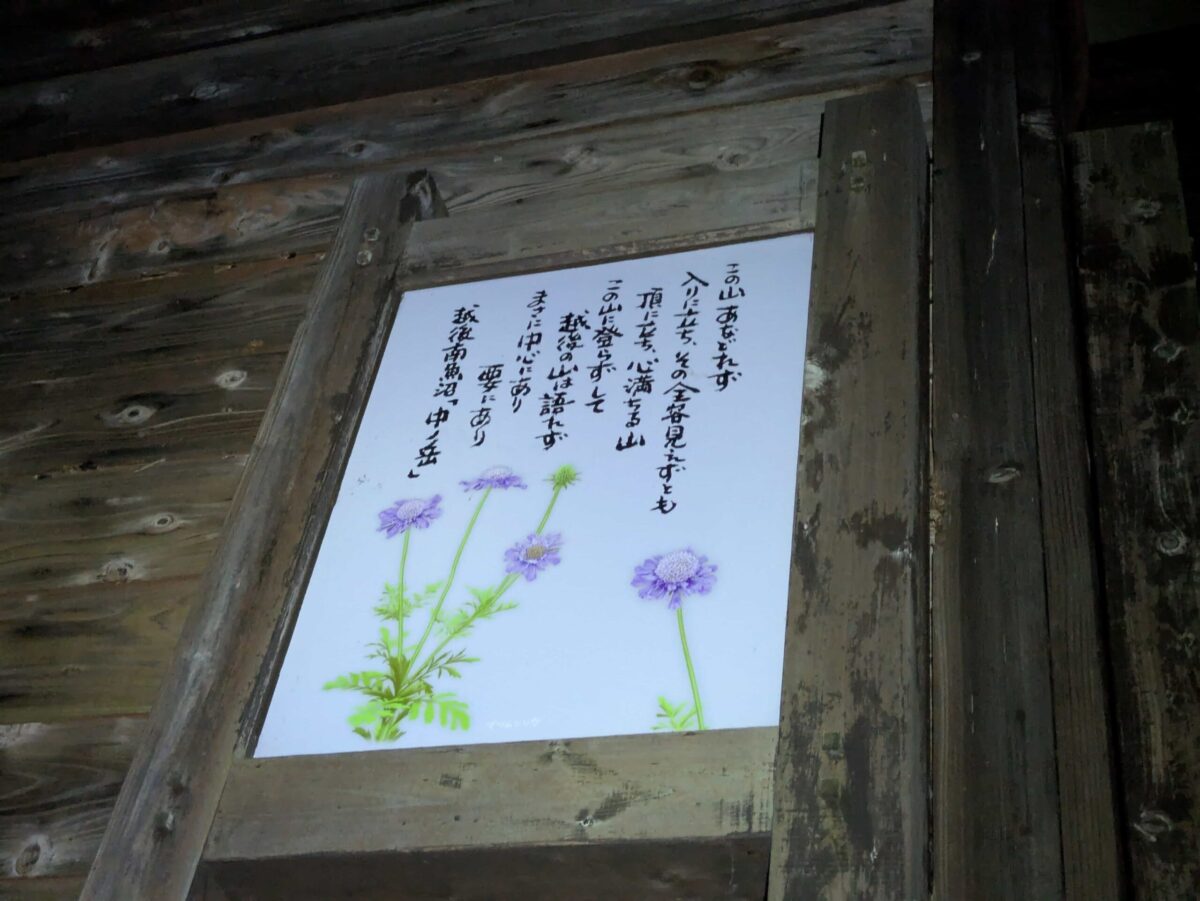 この山あなどれず
入りに立ち、その全容見れずとも
頂に立ち、心満ちる山
この山に登らずして
越後の山は語れず
まさに中心にあり
要にあり
越後南魚沼「中ノ岳」